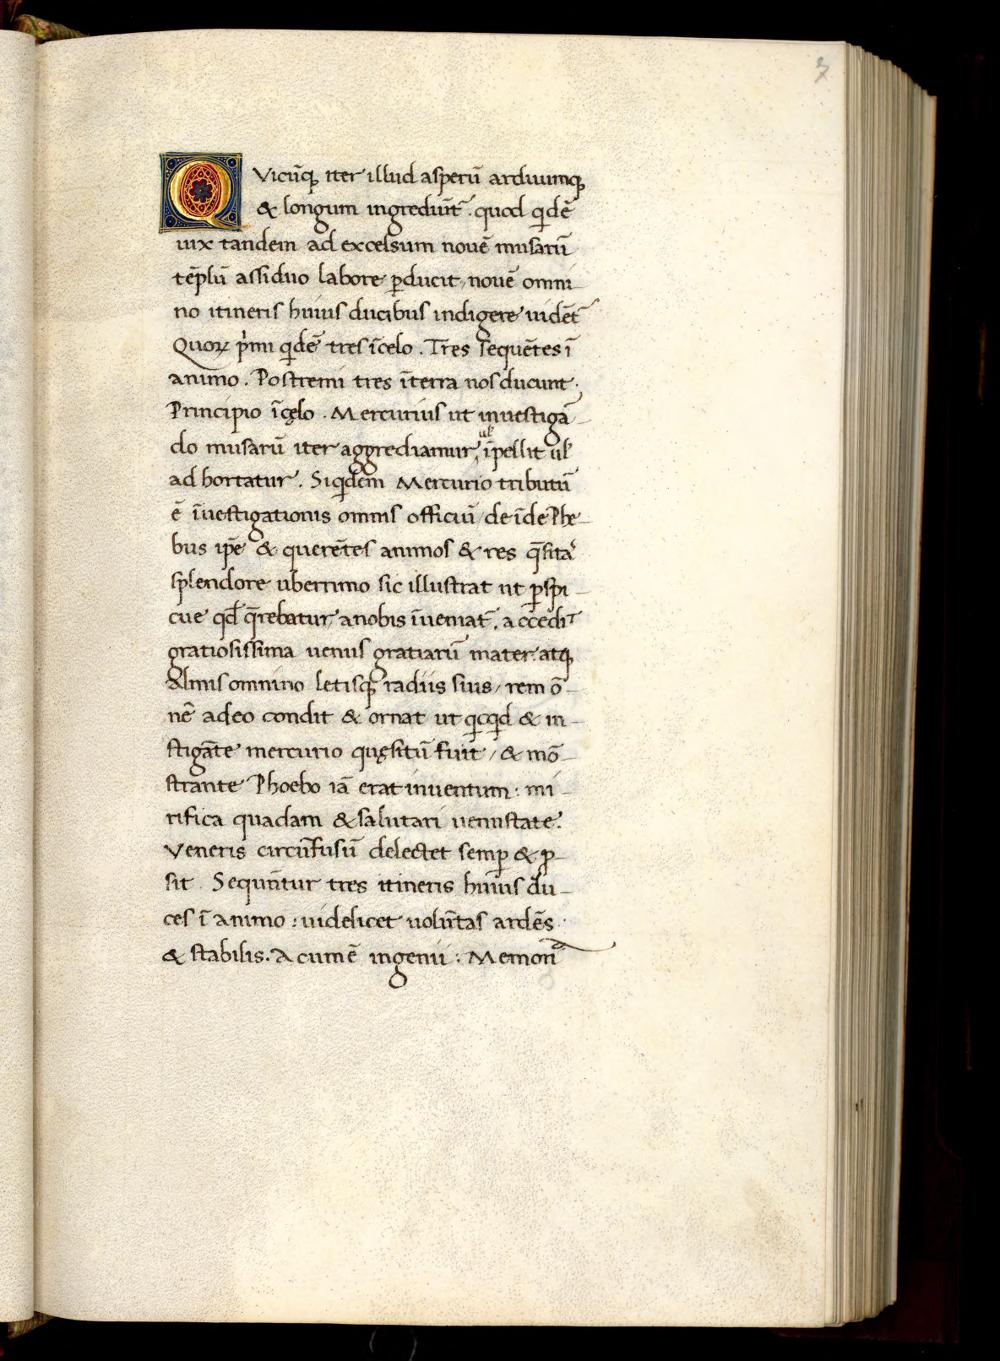 3
QVicūq; iter illud asperū arduumq;
& longum ingrediūt̄ . quod q̄dē
uix tandem ad excelsum nouē musarū
tēplū assiduo labore ꝑducit, nouē omni
no itineris huius ducibus indigere uidet̄
Quoꝝ p̄mi q̄dē tres ī celo . Tres sequētes ī
animo . Postremi tres ī terra nos ducunt .
Principio ī cęlo . Mercurius ut inuestigā
do musarū iter aggrediamur, īpellit ul̄
ad hortatur . Siq̄dem Mercurio tributū
ē īuestigationis omnis officiū / deīde Phe
bus ip̄e & querētes animos & res q̄sita⁹
splendore uberrimo sic illustrat ut ꝑspi
cue qđ q̄rebatur anobis īueniat̄ . accedit
gratiosissima uenus gratiarū mater atq;
Almis omnino letisq; radiis suis / rem ō
nē adeo condit & ornat ut q̄cq̄d & in
stigāte mercurio quęsitū fuit / & mō
strante Phoebo iā erat inuentum : mi
rifica quadam & salutari uenustate .
Veneris circūfusū delectet semꝑ & ꝓ
sit . Sequntur tres itineris huius du
ces ī animo : uidelicet volūtas ardēs
& stabilis . Acumē ingenii : Memoria